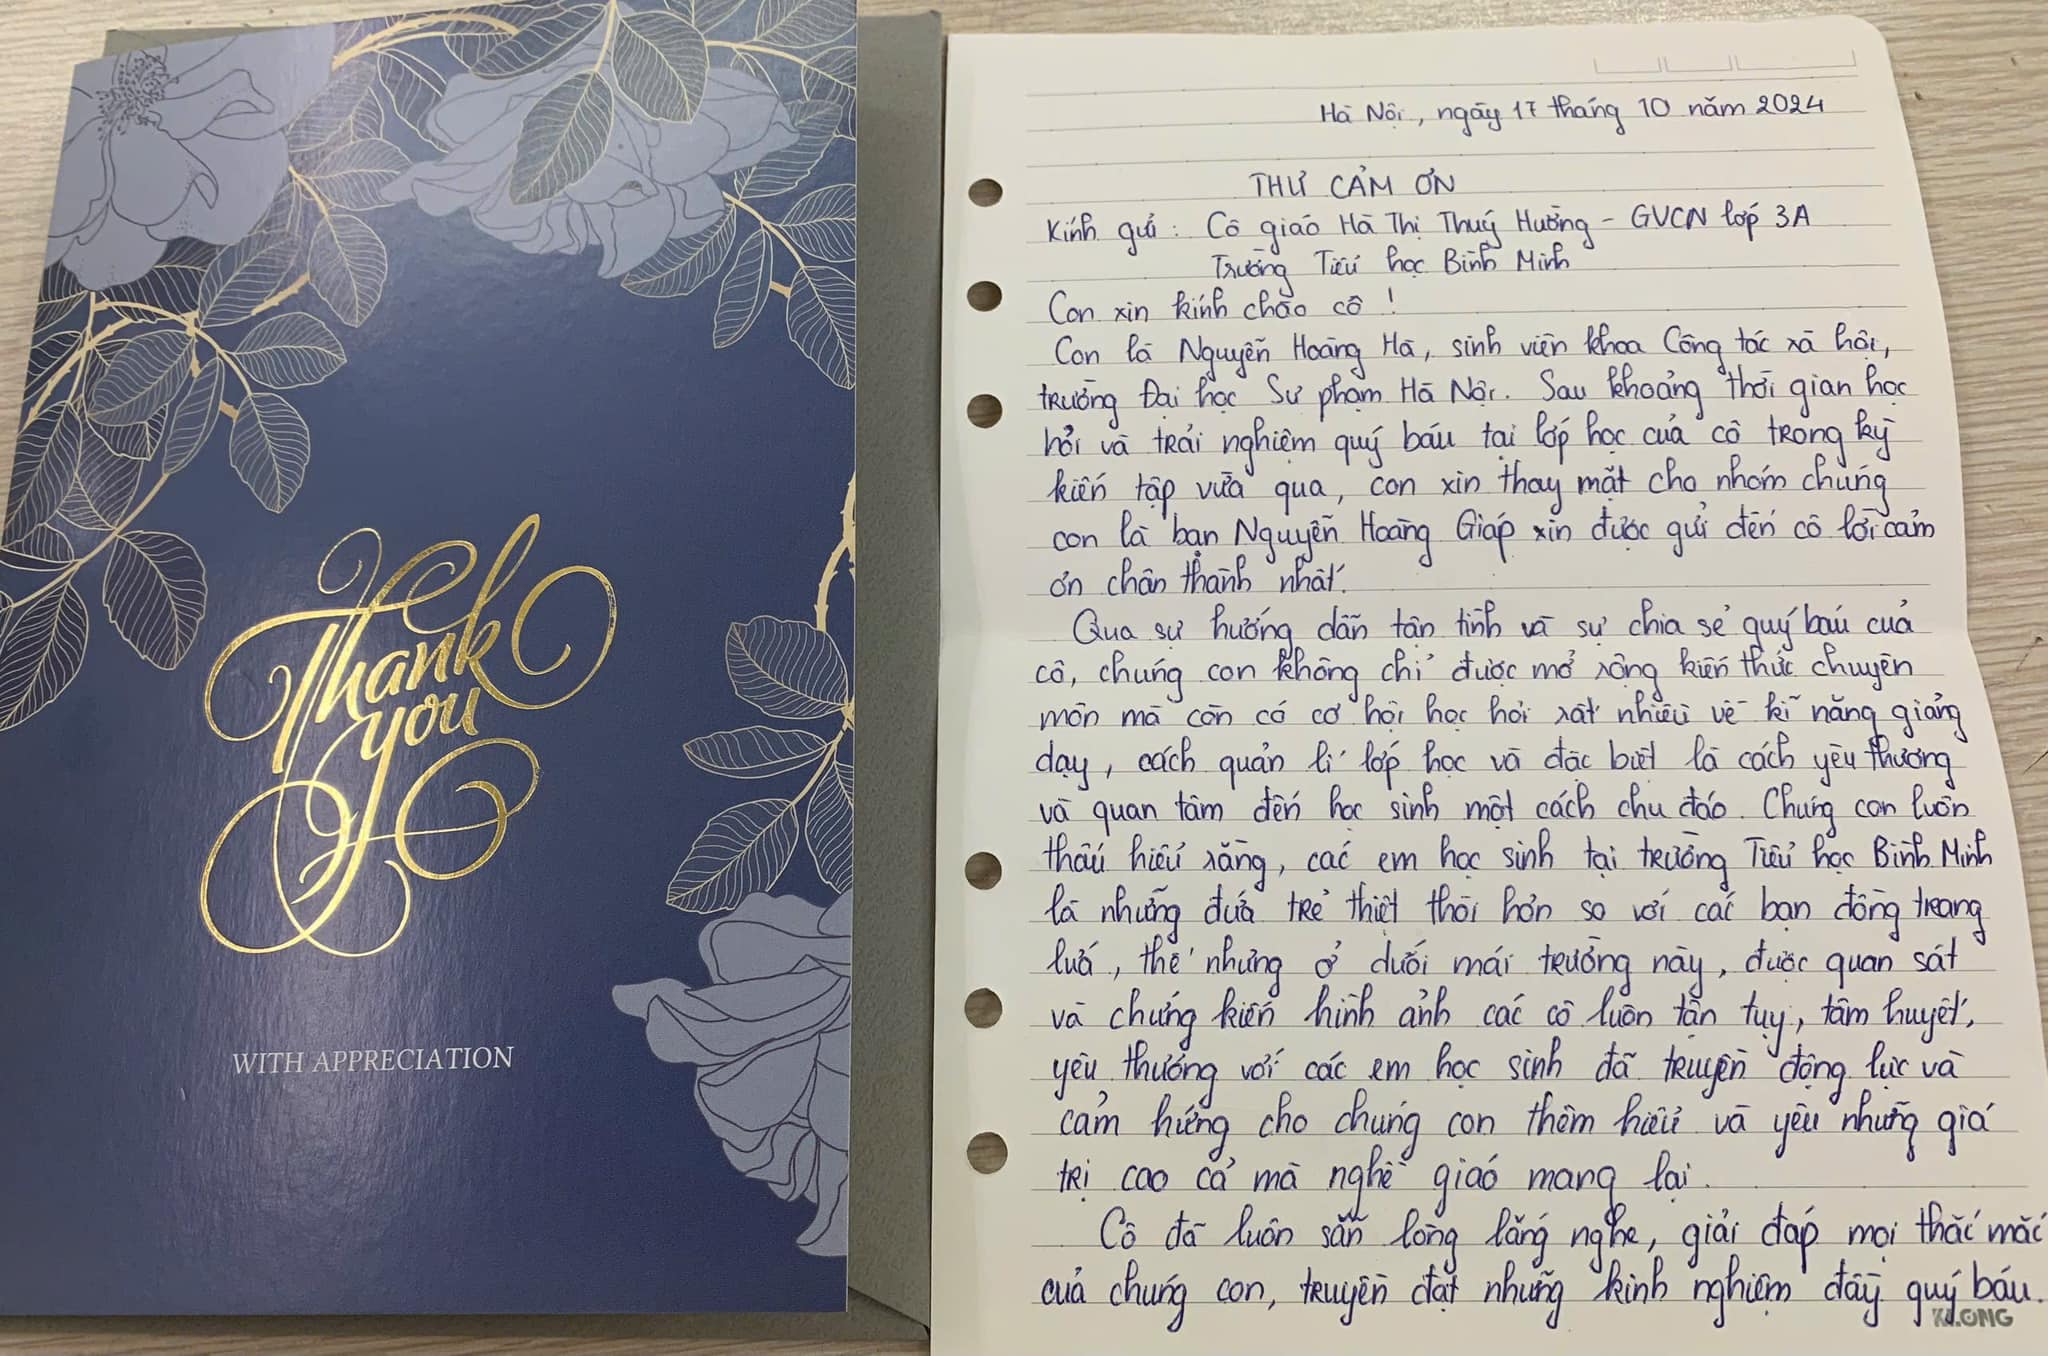 Thank
you
WITH APPRECIATION
Hà Nội, ngày 17 tháng 10 năm 2024
THƯ CẢM ƠN
Kính gửi : Cô giáo Hà Thị Thuý Hường - GVCN lớp 3A
Trường Tiểu học Bình Minh
Con xin kính chào cô !
Con là Nguyễn Hoàng Hà, sinh viên khoa Công tác xã hội,
trường Đại học Sư phạm Hà Nội. Sau khoảng thời gian học
hỏi và trải nghiệm quý báu tại lớp học của cô trong kỳ
kiến tập vừa qua, con xin thay mặt cho nhóm chúng
con là bạn Nguyễn Hoàng Giáp xin được gửi đến cô lời cảm
ơn chân thành nhất.
Qua sự hướng dẫn tận tình và sự chia sẻ quý báu của
cô, chúng con không chỉ được mở rộng kiến thức chuyên
môn mà còn có cơ hội học hỏi rất nhiều về kĩ năng giảng
dạy, cách quản lí lớp học và đặc biệt là cách yêu thương
và quan tâm đến học sinh một cách chu đáo. Chúng con luôn
thấu hiểu rằng, các em học sinh tại trường Tiểu học Bình Minh
là những đứa trẻ thiệt thòi hơn so với các bạn đồng trang
lứa, thế nhưng ở dưới mái trường này, được quan sát
và chứng kiến hình ảnh các cô luôn tận tụy, tâm huyết,
yêu thương với các em học sinh đã truyền động lực và
cảm hứng cho chúng con thêm hiểu và yêu những giá
trị cao cả mà nghề giáo mang lại.
Cô đã luôn sẵn lòng lắng nghe, giải đáp mọi thắc mắc
của chúng con, truyền đạt những kinh nghiệm đầy quý báu.
KLONG